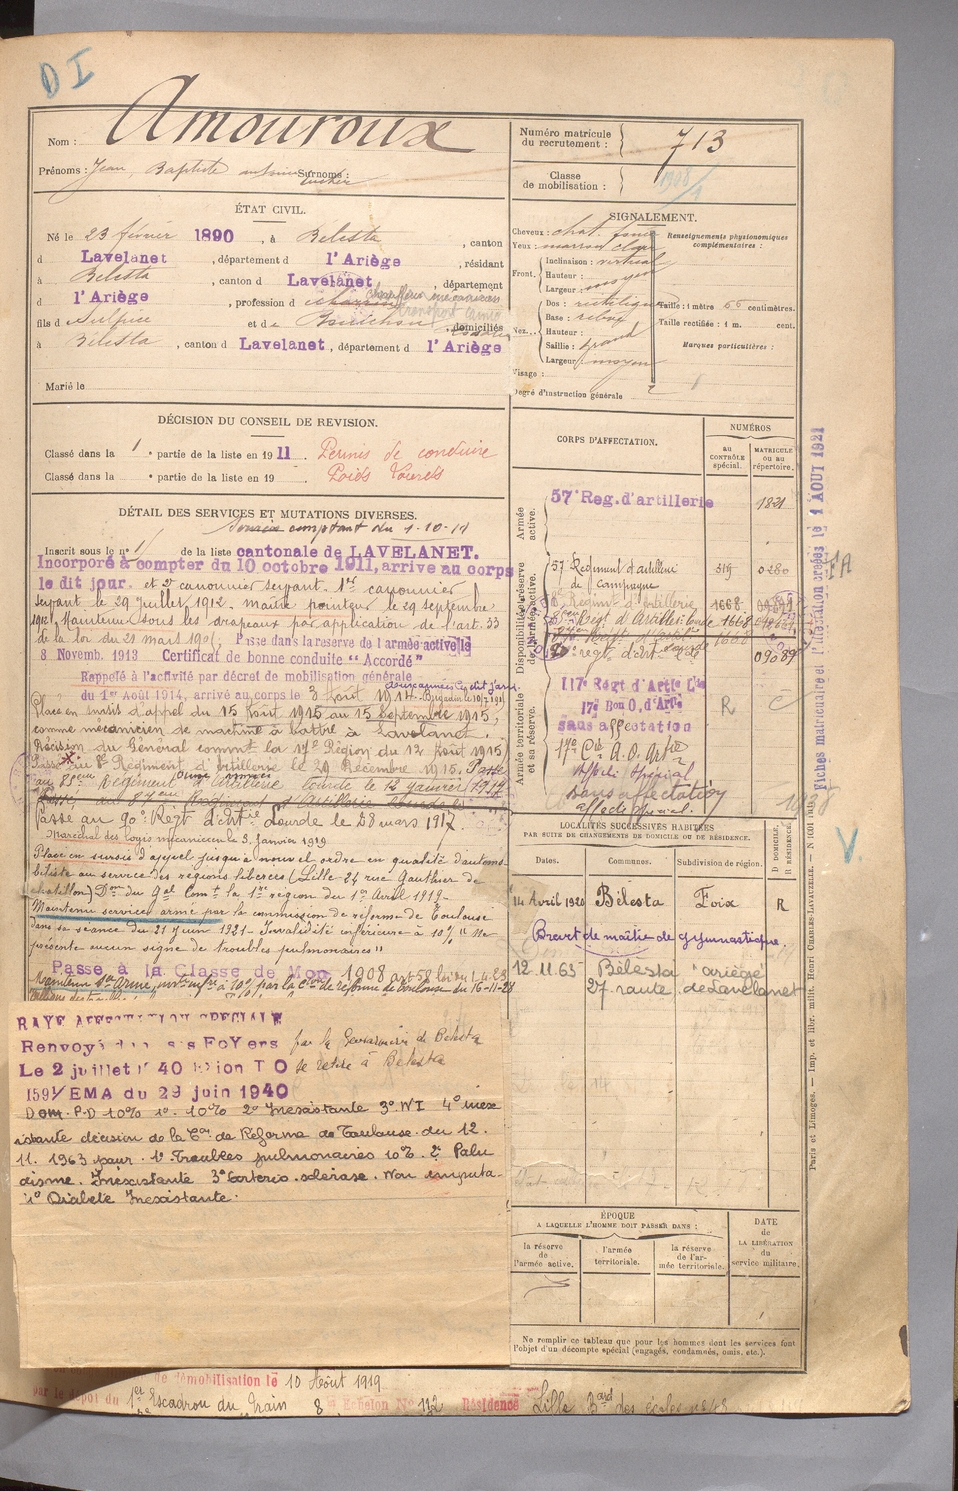 D I
Nom : Amouroux
Prénoms : Jean, Baptiste Surnoms :
Numéro matricule
du recrutement : 713
Classe
de mobilisation : 1908
ÉTAT CIVIL.
Né le 23 février 1890, à Bélesta, canton
d Lavelanet, département d l'Ariège, résidant
à Bélesta, canton d Lavelanet, département
d l'Ariège, profession d
fils d Sulpice et de domiciliés
à Bélesta, canton d Lavelanet, département d l'Ariège
Marié le
SIGNALEMENT.
Cheveux : chat.
Yeux : marron clair
Front. Inclinaison : vertical
Hauteur : moy
Largeur :
Nez. Dos : rectiligne
Base :
Hauteur :
Saillie : grand
Largeur : moyen
Visage :
Degré d'instruction générale 2
Renseignements physionomiques
complémentaires :
Taille : 1 mètre 66 centimètres.
Taille rectifiée : 1 m. cent.
Marques particulières :
DÉCISION DU CONSEIL DE REVISION.
Classé dans la 1 e partie de la liste en 1911. Permis de conduire
Classé dans la e partie de la liste en 19 . Poids Lourds
DÉTAIL DES SERVICES ET MUTATIONS DIVERSES.
Services comptant du 1-10-11
Inscrit sous le n° 1 de la liste cantonale de LAVELANET.
Incorporé à compter du 10 octobre 1911, arrive au corps
le dit jour et 2e canonnier servant. 1er canonnier
servant le 29 Juillet 1912. maître pointeur le 29 septembre
1912. Maintenu sous les drapeaux par application de l'art. 33
de la loi du 21 mars 1905. Passe dans la reserve de l'armée active le
8 Novemb. 1913 Certificat de bonne conduite "Accordé"
Rappelé à l'activité par décret de mobilisation générale
du 1er Août 1914, arrivé au corps le 3 Août 1914. Brigadier le
Placé en sursis d'appel du 15 Août 1915 au 15 Septembre 1915,
comme mécanicien de machine à battre à Lavelanet.
Décision du Général commt la 17e Région du 12 Août 1915
Passé au 8e Régiment d'Artillerie le 29 Décembre 1915. Passé
au 85ème Régiment d'Artillerie lourde le 12 janvier 1917
Passé au 87ème Régiment d'Artillerie Lourde le
Passé au 90e Régt d'Artrie Lourde le 28 mars 1917.
Maréchal des logis mécanicien le 3 Janvier 1919
Placé en sursis d'appel jusqu'à nouvel ordre en qualité d'automo-
biliste au service des régions libérées (Lille 24 rue Gauthier de
chatillon) Don du Gal Comt la 1re région du 1er Avril 1919-
Maintenu service armé par la commission de réforme de Toulouse
dans sa séance du 21 juin 1921 - Invalidité inférieure à 10% "Ne
présente aucun signe de troubles pulmonaires"
Passe à la Classe de Mon 1908 art 58 loi du 1.4.23
Maintenu Sce Armé, invté infre à 10% par la Con de réforme de Toulouse du 16-11-28
RAYE AFFECTATION SPECIALE
Renvoyé dans ses FoYers par la Gendarmerie de Bélesta
Le 2 juillet 1940 se retire à Bélesta
1591/EMA du 29 juin 1940
Dom. P.D 10% 1°. 10% 2° Inexistante 3° NI 4° inex
istante décision de la Con de Réforme de Toulouse du 12.
11. 1963 pour : 1° Troubles pulmonaires 10%. 2° Palu
disme. Inexistante 3° artério-sclérose. Non imputa-
Diabète Inexistante.
de démobilisation le 10 Août 1919
par le dépôt du 1er Escadron du Train 8 Echelon N° 112 Résidence Lille Bard des écoles n° 48
CORPS D'AFFECTATION.
NUMÉROS
au
CONTRÔLE
spécial.
MATRICULE
ou au
répertoire.
Armée
active.
57e Reg. d'artillerie 1821
Disponibilité et réserve
de l'armée active.
57e Régiment d'Artillerie
de Campagne 319 0280
Régiment d'Artillerie 1668
Régt d'Artillerie lourde 1668
90e régt d'Art 09089
Armée territoriale
et sa réserve.
117e Régt d'Artie Lde
17e Bon O. d'Artie R C
sans affectation
17e Cie A. O. Artrie
Affecté spécial
sans affectation
affecté spécial
1908
LOCALITÉS SUCCESSIVES HABITÉES
PAR SUITE DE CHANGEMENTS DE DOMICILE OU DE RÉSIDENCE.
Dates. Communes. Subdivision de région. D DOMICILE. R RÉSIDENCE.
14 Avril 1920 Bélesta Foix R
Brevet de maître de gymnastique.
12.11.63 Bélesta "ariège"
27. route de Lavelanet
ÉPOQUE
A LAQUELLE L'HOMME DOIT PASSER DANS :
la réserve
de
l'armée active.
l'armée
territoriale.
la réserve
de l'ar-
mée territoriale.
DATE
de
LA LIBÉRATION
du
service militaire.
Ne remplir ce tableau que pour les hommes dont les services font
l'objet d'un décompte spécial (engagés, condamnés, omis, etc.).
Fiches matriculaire et d'affectation créées le 1 AOUT 1921
V.
Paris et Limoges. — Imp. et libr. milit. Henri CHARLES-LAVAUZELLE.